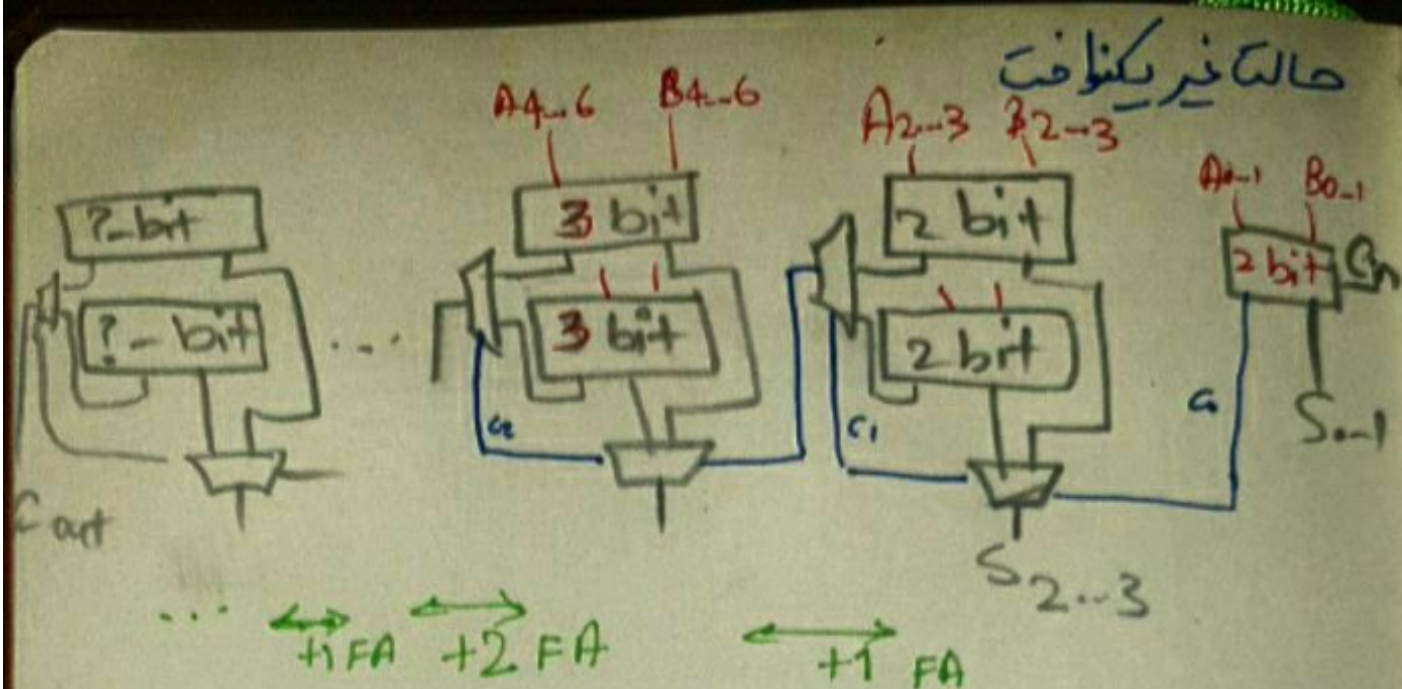 حالت غیر یکنواخت
A4..6 B4..6 A2..3 B2..3
A0-1 B0-1
?-bit 3 bit 2 bit
2 bit Cin
?-bit ... 3 bit 2 bit
C2 C1 C0
S0-1
Cout
S2..3
... +1 FA +2 FA +1 FA